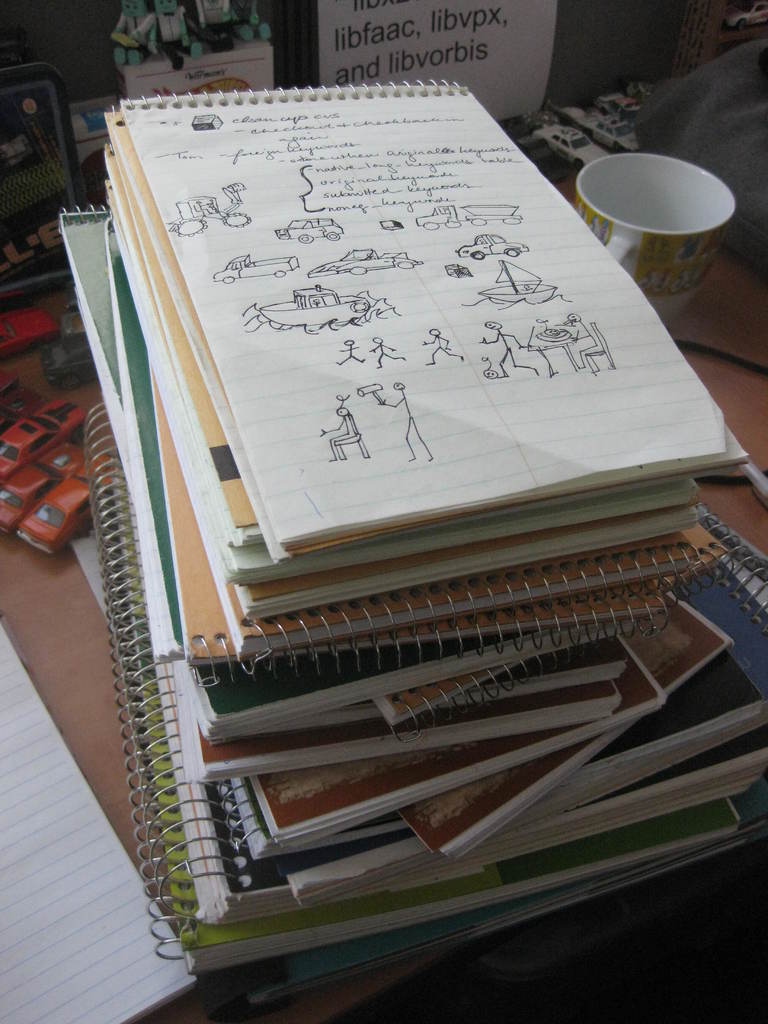 libfaac, libvpx,
and libvorbis
clean up cvs
- checkout & check back in
again
Tom - foreign keywords
- store when original keywords
native_lang_keywords table
original keywords
submitted keywords